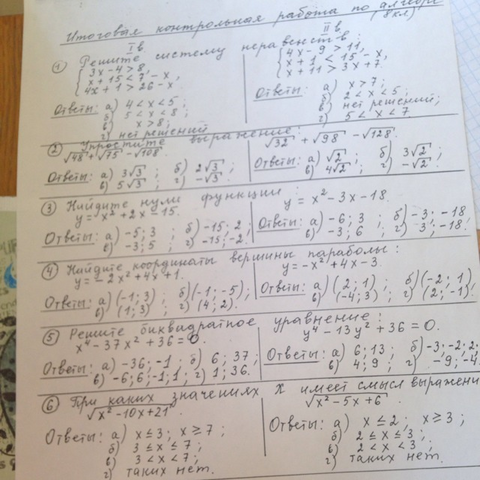 Итоговая контрольная работа по алгебре (8 кл)
I в
II в
① Решите систему неравенств:
{3x - 4 > 8,
x + 15 < 7 - x,
4x + 1 > 26 - x
Ответы: а) 4 < x < 5;
б) 5 < x < 8;
в) x > 8;
г) нет решений
{4x - 9 > 11,
x + 1 < 15 - x,
x + 11 > 3x + 7
Ответы: а) x > 7;
б) 2 < x < 5;
в) нет решений;
г) 5 < x < 7
② Упростите выражение:
√48 + √75 - √108
Ответы: а) 3√3; б) 2√3;
в) 5√3; г) -√3.
√32 + √98 - √128.
Ответы: а) √2; б) 3√2;
в) 4√2; г) -√2.
③ Найдите нули функции:
y = x² + 2x - 15.
Ответы: а) -5; 3; б) -15; 2;
в) -3; 5; г) -15; -2;
y = x² - 3x - 18.
Ответы: а) -6; 3; б) -3; -18
в) -3; 6; г) 3; -18.
④ Найдите координаты вершины параболы:
y = -2x² + 4x + 1.
Ответы: а) (-1; 3); б) (-1; -5);
в) (1; 3); г) (4; 2).
y = -x² + 4x - 3.
Ответы: а) (2; 1); б) (-2; 1)
в) (-4; 3); г) (2; -1).
⑤ Решите биквадратное уравнение:
x⁴ - 37x² + 36 = 0.
Ответы: а) -36; -1 б) 6; 37;
в) -6; 6; -1; 1; г) 1; 36.
y⁴ - 13y² + 36 = 0.
Ответы: а) 6; 13; б) -3; -2; 2;
в) 4; 9; г) -9; -4
⑥ При каких значениях x имеет смысл
√x² - 10x + 21
Ответы: а) x ≤ 3; x ≥ 7;
б) 3 ≤ x ≤ 7;
в) 3 < x < 7;
г) таких нет.
√x² - 5x + 6
Ответы: а) x ≤ 2; x ≥ 3;
б) 2 ≤ x ≤ 3;
в) 2 < x < 3;
г) таких нет